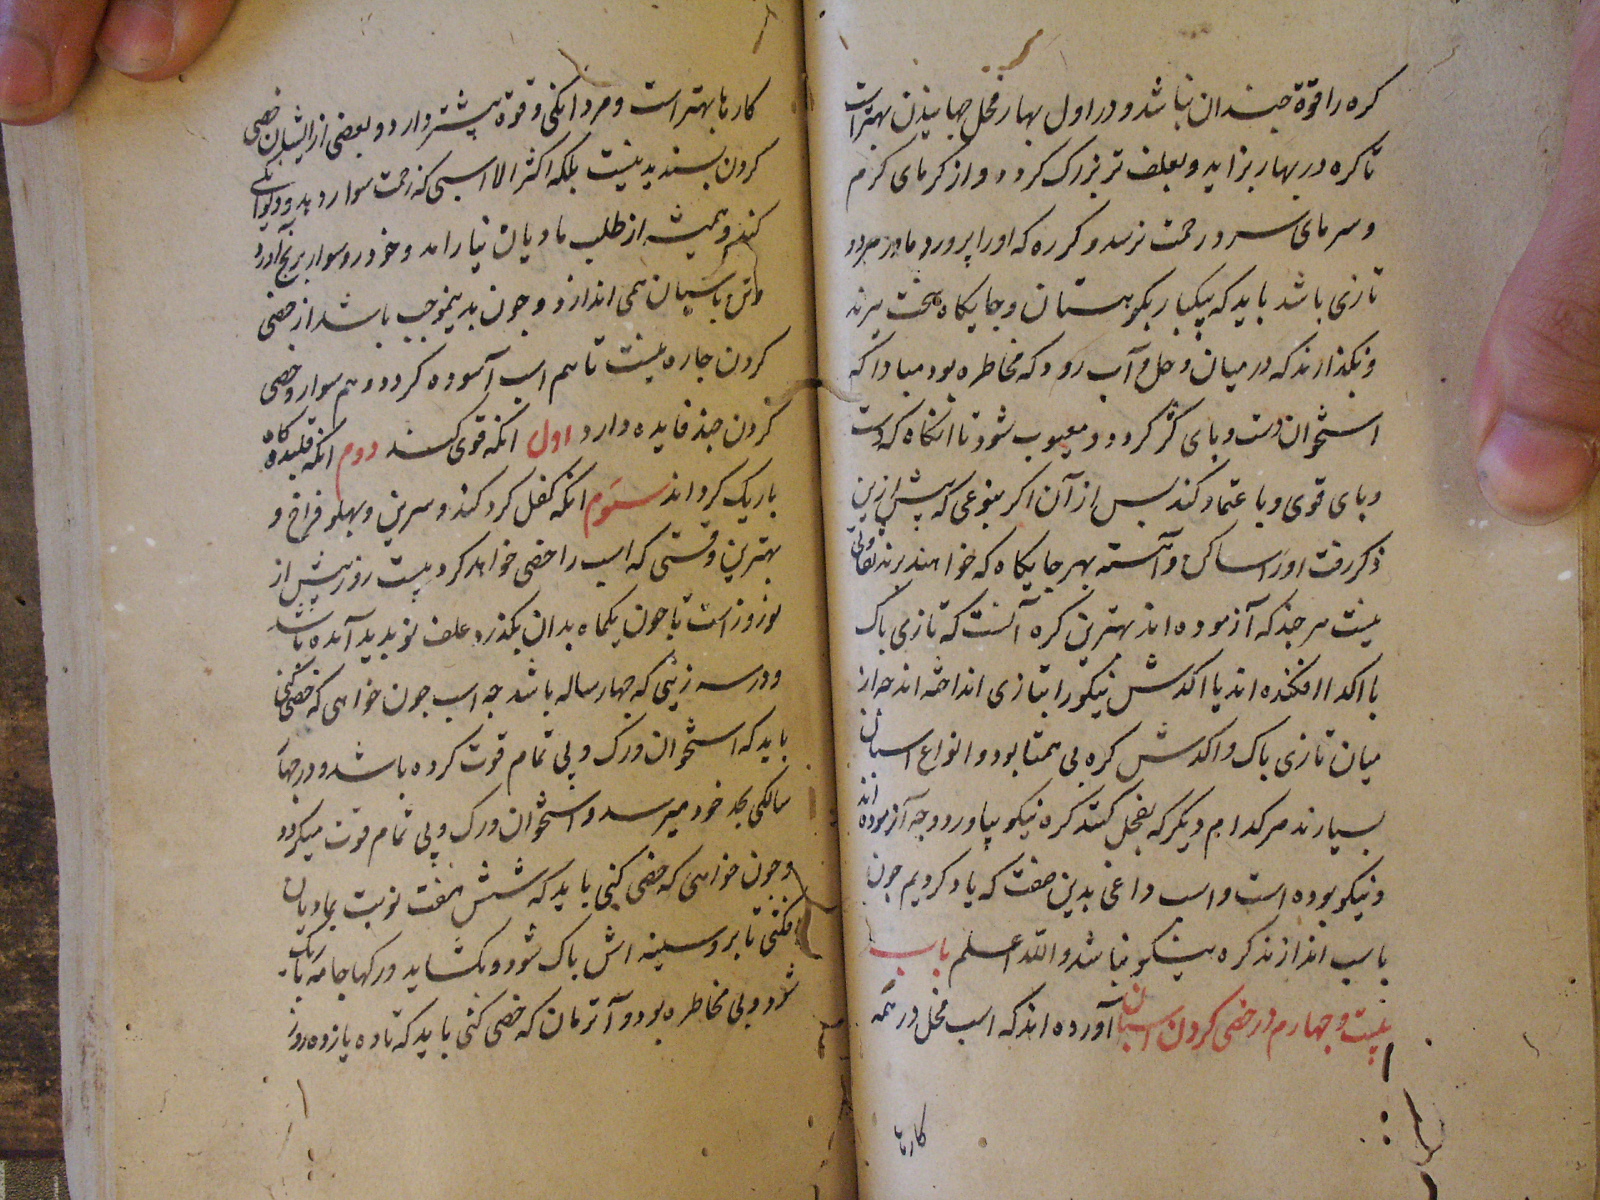 کره را قوة جندان نباشد و در اول بهار فحل جهانیدن بهتر است
تا کره در بهار بزاید و بعلف تر بزرک کردد و از کرمای کرم
و سرمای سرد زحمت نرسد و کره که او را پرورد مادر
تازی باشد باید که بیکبار بکوهستان و جایکاه سخت برند
و نکذارند که در میان وحل و آب رود که مخاطره بود مبادا که
استخوان دست و بای کژ کردد و معیوب شود تا انکاه که دست
و بای قوی و با عتماد کند بس از آن اکر بنوعی که پیش ازین
ذکر رفت او را ساکن و آهسته بهر جایکاه که خواهند برند تفاوتی
نیست هر جند که آزموده اند بهترین کره آنست که تازی باک
با اکدش افکنده اند یا اکدش نیکو را بتازی انداخته اند جه از
میان تازی باک و اکدش کره بی همتا بود و انواع اسبان
بسیارند هر کدام دیکر که بفحل کنند کره نیکو بیاورد و جه آزموده اند
و نیکو بوده است و اسب داغی بدین صفت که یاد کردیم جون
باسب اندازند کره نیکو نباشد والله اعلم باب
بیست و جهارم در خصی کردن اسبان آورده اند که اسب فحل در همه
کارها
کارها بهتر است و مردانکی و قوة پیشتر دارد و بعضی از ایشان خصی
کردن بسندیده نیست بلکه اکثر الا اسبی که زحمت سوار دهد و دیوانکی
کند و همیشه از طلب مادیان نیارامد و خود را و سوار برنج آورد
و تن باسبان همی اندازد و جون بدینموجب باشد از خصی
کردن جاره نیست تا هم اسب آسوده کردد و هم سوار و خصی
کردن جند فایده دارد اول انکه قوی کند دوم انکه قلیده کاه
باریک کرداند سیوم انکه کفل کرد کند و سرین و بهلو فراخ و
بهترین وقتی که اسب را خصی خواهد کرد بیست روز پیش از
نوروز است تا جون یکماه بدان بکذرد علف نو بدید آمده باشد
و در سه زینی که جهار ساله باشد جه اسب جون خواهی که خصی کنی
باید که استخوان و رک و پی تمام قوت کرده باشد و در جهار
سالکی بحد خود میرسد و استخوان و رک و پی تمام قوت میکیرد
و جون خواهی که خصی کنی باید که شش هفت نوبت بمادیان
فکنی تا بر و سینه اش باک شود و بکشاید و رکها جامه باریک
شود و بی مخاطره بود و آنزمان که خصی کنی باید که تا ده یازده روز